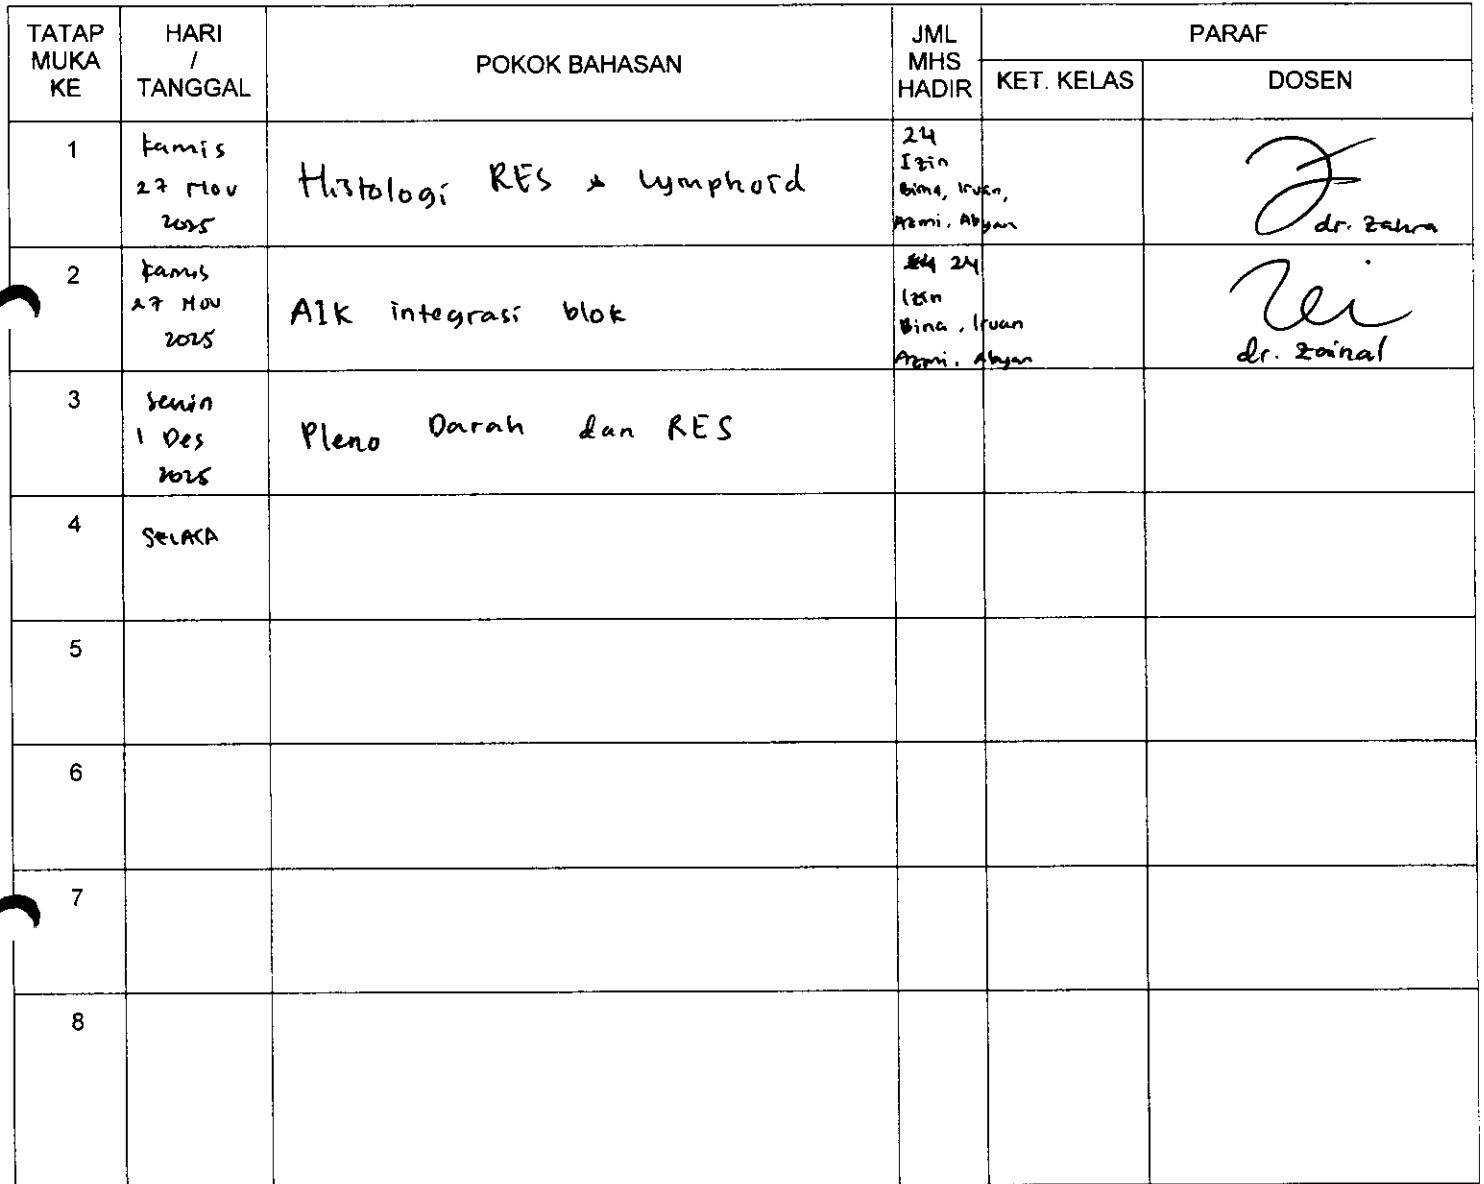 TATAP MUKA KE
HARI / TANGGAL
POKOK BAHASAN
JML MHS HADIR
PARAF
KET. KELAS
DOSEN
1
Kamis
27 Nov
2025
Histologi RES & Lymphoid
24
Izin
Bima, Irvan,
Azmi, Abyan
dr. Zahra
2
Kamis
27 Nov
2025
AIK integrasi blok
24
Izin
Bima, Irvan
Azmi, Abyan
dr. Zainal
3
Senin
1 Des
2025
Pleno Darah dan RES
4
5
6
7
8